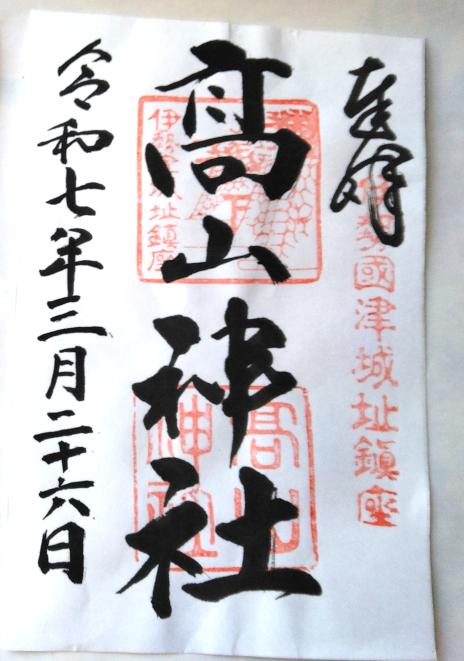 奉拝
伊勢國津城址鎮座
髙山神社
伊勢
城址鎮座
高山
神社
令和七年三月二十六日